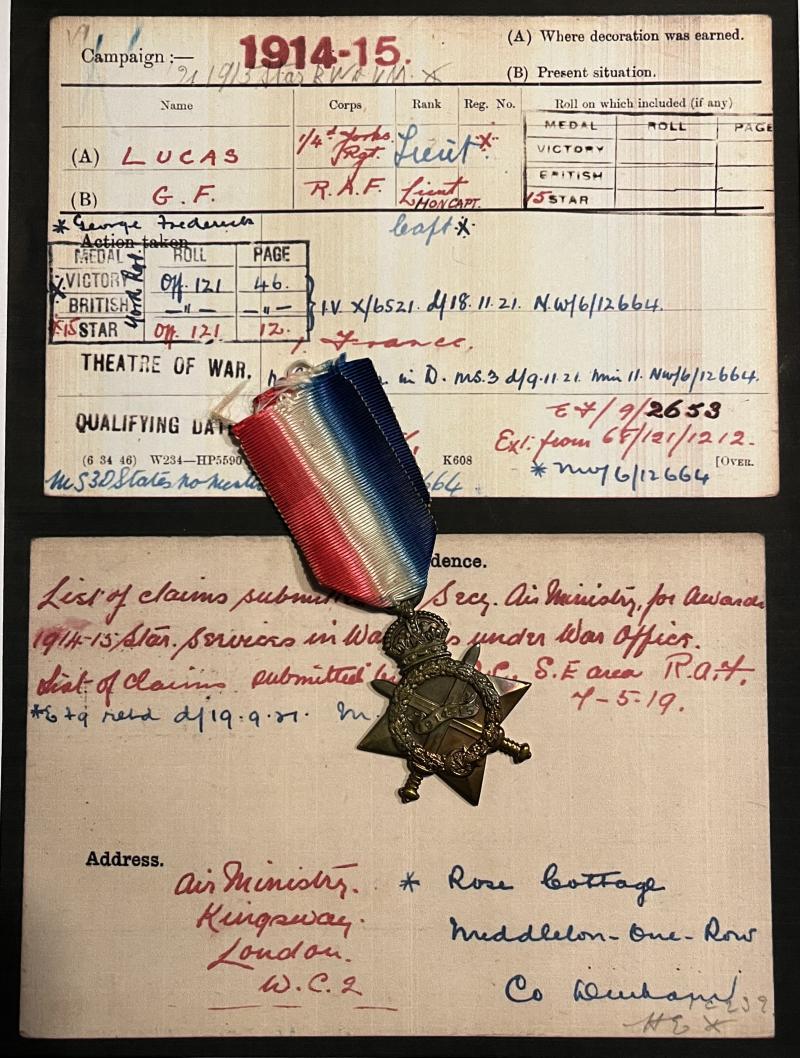 Campaign :— 1914-15.
(A) Where decoration was earned.
(B) Present situation.
Name Corps Rank Reg. No. Roll on which included (if any)
MEDAL ROLL PAGE
VICTORY
BRITISH
15 STAR
(A) LUCAS 1/4th Yorks Rgt. Lieut x
(B) G. F. R.A.F. Lieut
HON CAPT.
* George Frederick Capt x
Action taken
MEDAL ROLL PAGE
York Rgt.
x VICTORY Off. 121 46.
BRITISH —"— —"—
x 15 STAR Off. 121 12.
I.V. X/6521. d/18.11.21. N.W/6/12664.
THEATRE OF WAR. 1. France.
in D. MS.3 d/9.11.21. Min 11. NW/6/12664.
QUALIFYING DATE
E7/9/2653
Ext. from 68/121/1212.
(6 34 46) W234—HP5590 K608 [OVER.
* NW/6/12664
MS3D States no 664
dence.
List of claims Secy. Air Ministry, for Awards
1914-15 Star. Services in under War Office.
List of Claims submitted S.E area R.A.F.
7-5-19.
d/19.9.21.
Address.
Air Ministry.
Kingsway.
London.
W.C.2
* Rose Cottage
Middleton-One-Row
Co Durham